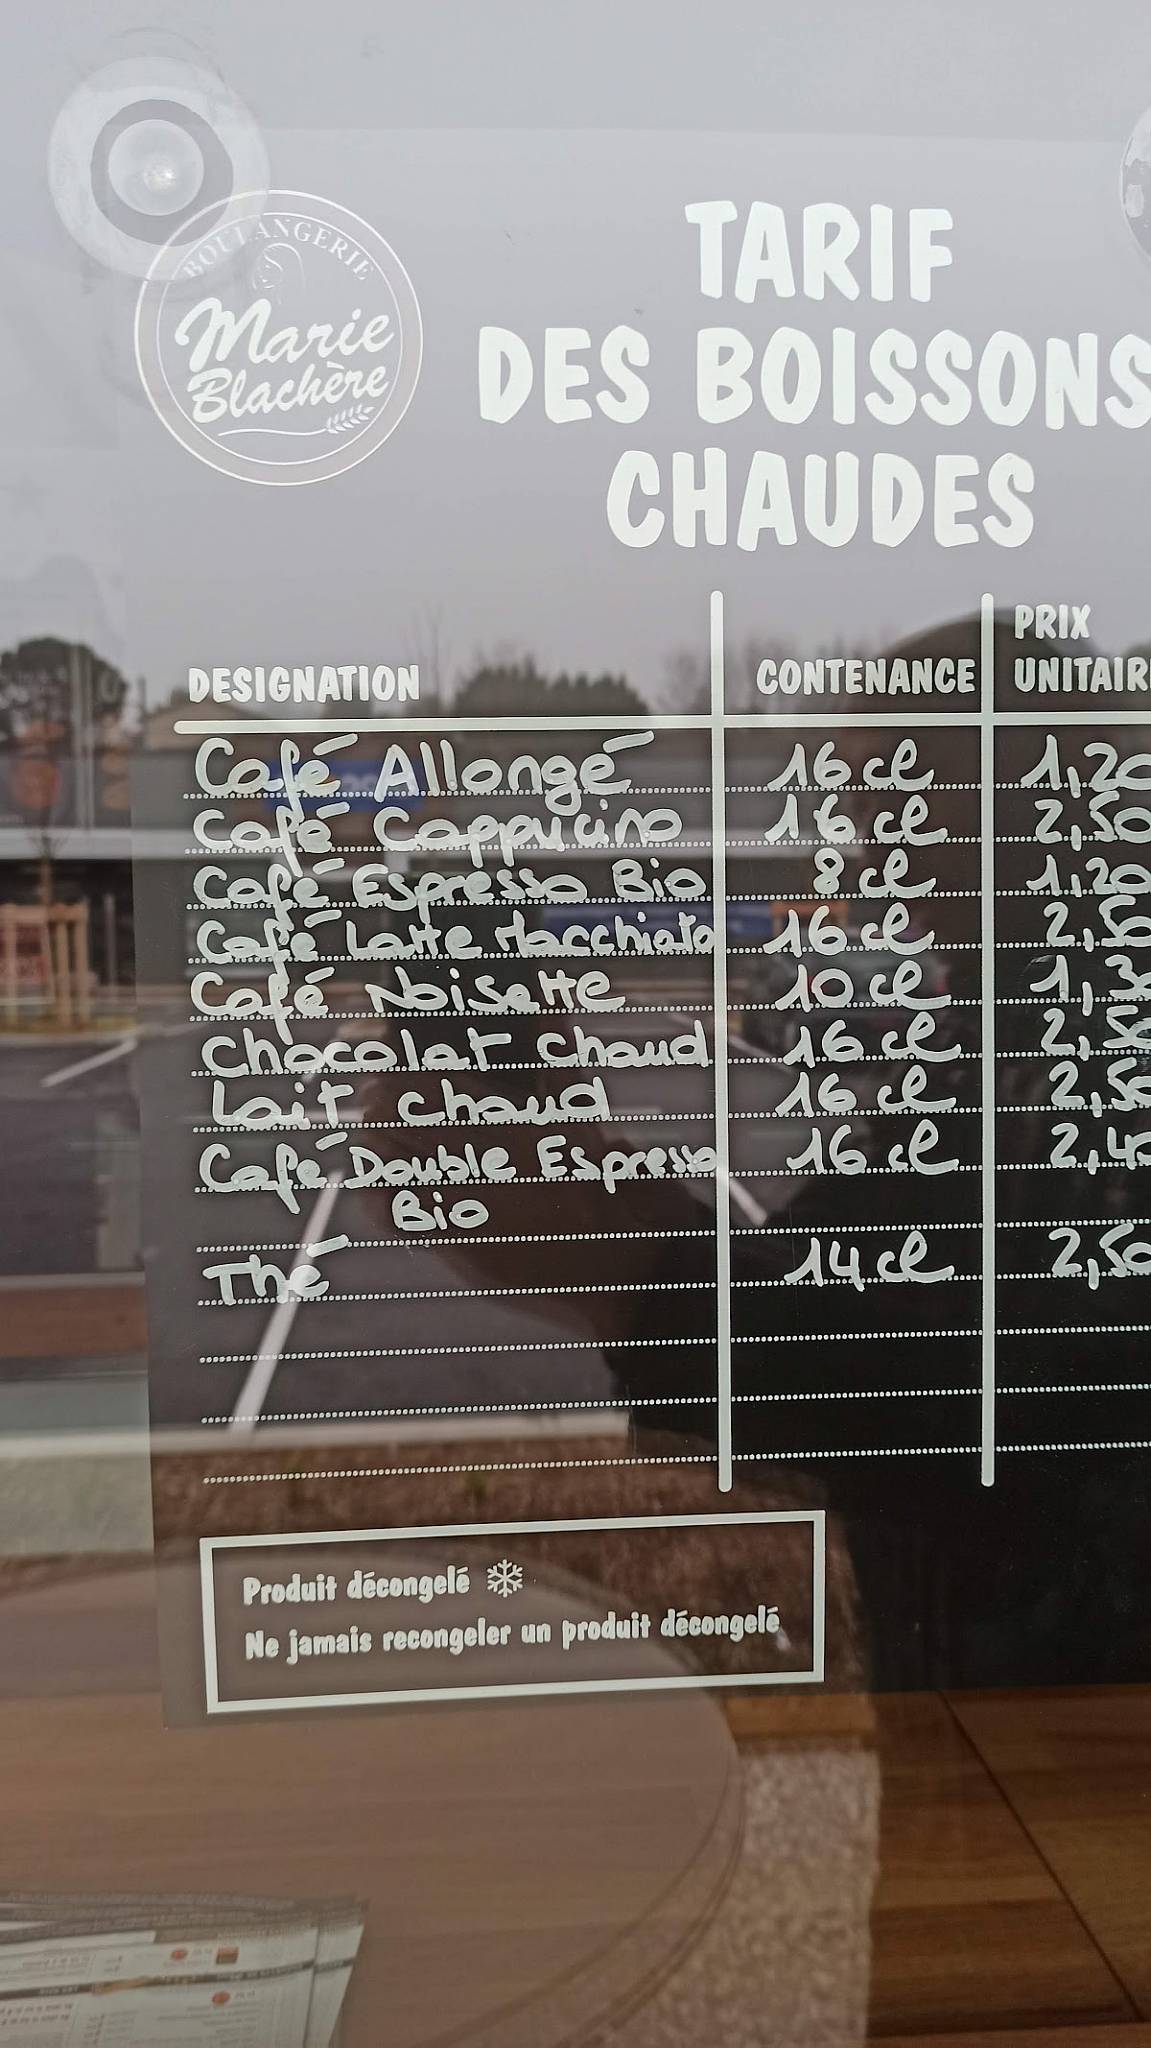 BOULANGERIE
Marie
Blachère
TARIF
DES BOISSONS
CHAUDES
DESIGNATION CONTENANCE PRIX UNITAIR
Café Allongé 16 cl 1,20
Café Cappucino 16 cl 2,50
Café Espresso Bio 8 cl 1,20
Café Latte Macchiato 16 cl 2,50
Café Noisette 10 cl 1,30
Chocolat Chaud 16 cl 2,50
Lait Chaud 16 cl 2,50
Café Double Espresso 16 cl 2,4
Bio
Thé 14 cl 2,50
Produit décongelé
Ne jamais recongeler un produit décongelé